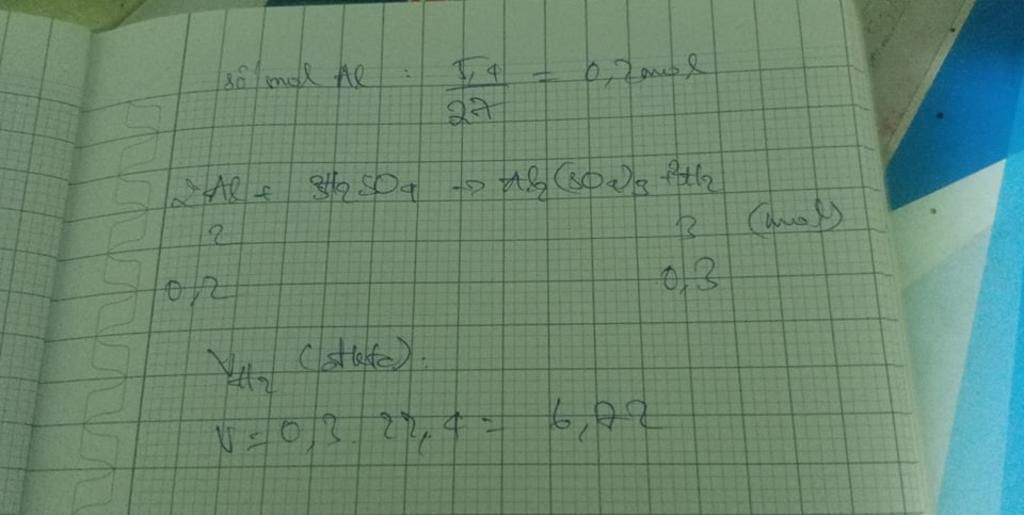 số mol Al : 5,4/27 = 0,2 mol
2Al + 3H2SO4 -> Al2(SO4)3 + 3H2
2 3 (mol)
0,2 0,3
VH2 (đktc):
V = 0,3. 22,4 = 6,72